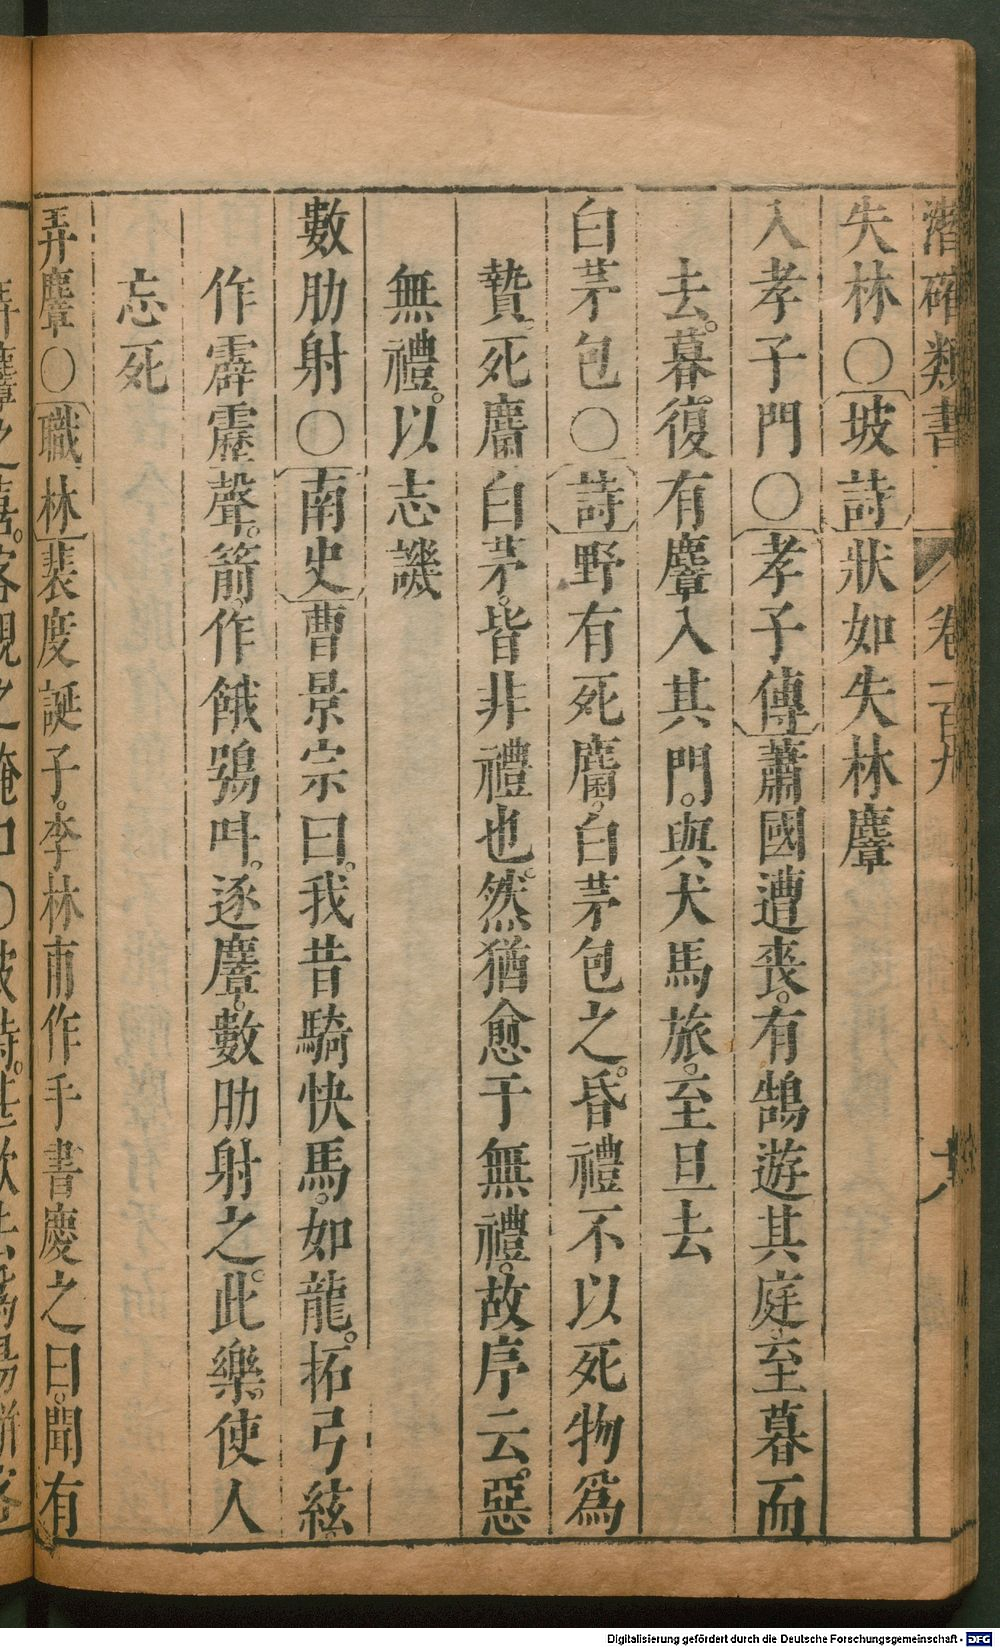 潛確類書 卷一百九
失林〇坡詩狀如失林麞
入孝子門〇孝子傳蕭國遭喪。有鵠遊其庭。至暮而
去。暮復有麞入其門。與犬馬旅。至旦去
白茅包〇詩野有死麕。白茅包之。昏禮不以死物爲
贄。死麕白茅。皆非禮也。然猶愈于無禮。故序云。惡
無禮。以志譏
數肋射〇南史曹景宗曰。我昔騎快馬。如龍。拓弓絃。
作霹靂聲。箭。作餓鴞叫。逐麞。數肋射之。此樂。使人
忘死
弄麞〇職林裴度誕子。李林甫作手書慶之曰。聞有
弄麞之喜。客觀之掩口〇坡詩。甚欲去爲湯餅客
Digitalisierung gefördert durch die Deutsche Forschungsgemeinschaft - DFG